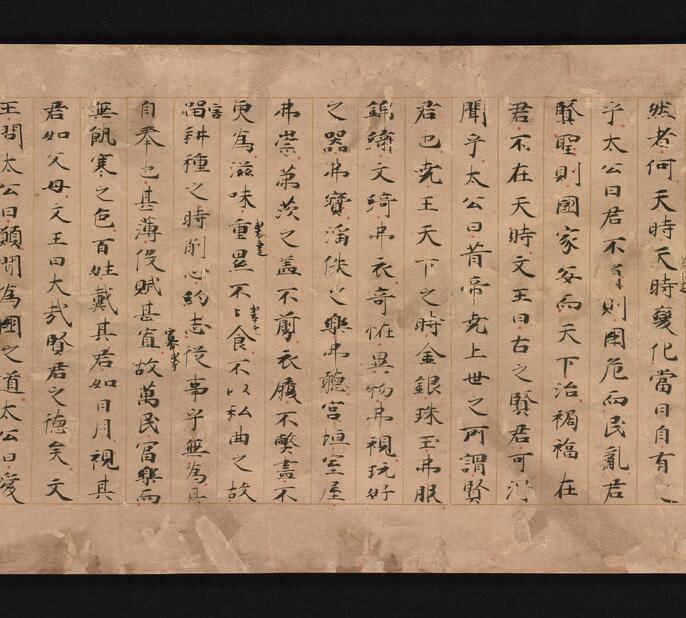 然者何天時天時變化當日自有之
乎太公曰君不肖則國危而民亂君
賢聖則國家安而天下治禍福在
君不在天時文王曰古之賢君可得
聞乎太公曰昔帝尭上世之所謂賢
君也尭王天下之時金銀珠玉弗服
錦繡文綺弗衣奇恠異物弗視玩好
之器弗寶滛佚之樂弗聽宮垣室屋
弗崇茅茨之盖不剪衣履不弊盡不
更為滋味重累不〻食不以私曲之故
害
留耕種之時削心約志従事乎無為其
自奉也甚薄役賦甚寡故萬民富樂而
無飢寒之色百姓戴其君如日月視其
君如父母文王曰大哉賢君之德矣文
王問太公曰願聞為國之道太公曰愛